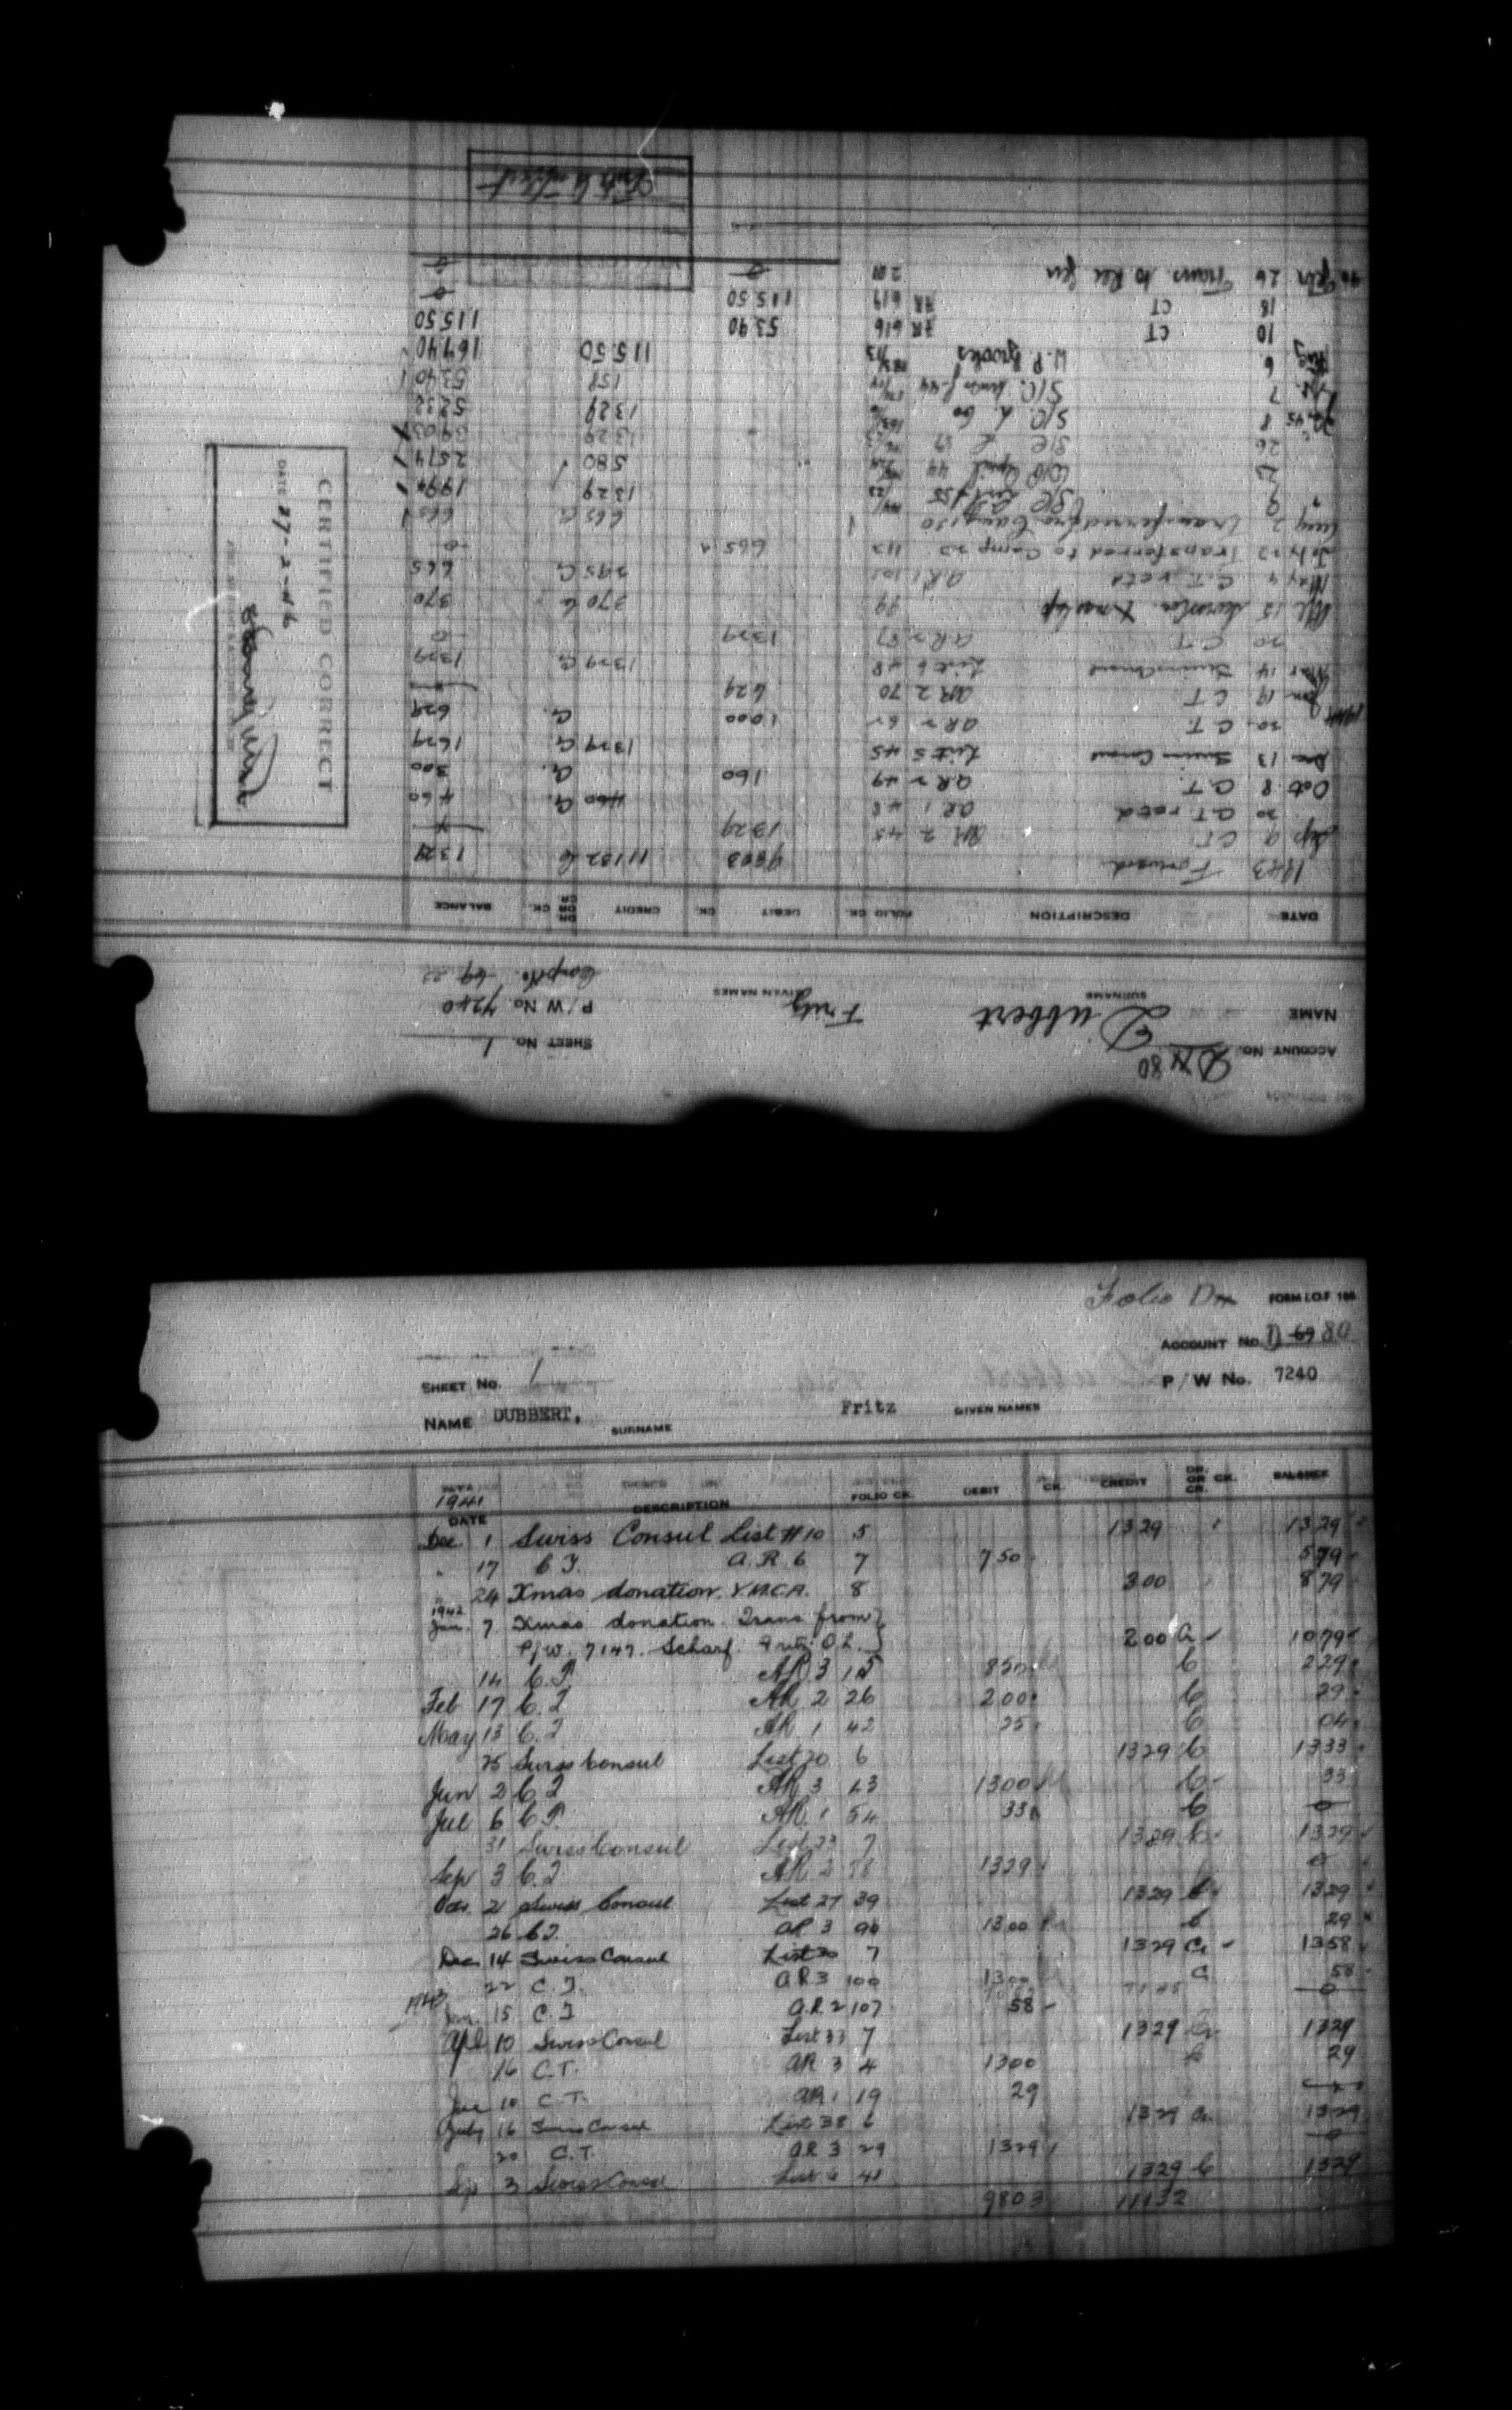 ACCOUNT No. DN 80
NAME Dubbert Fritz
SURNAME GIVEN NAMES
SHEET No. 1
P/W No. 7240
Camp No. 69 22
DATE DESCRIPTION FOLIO CK. DEBIT CK. CREDIT DR OR CR CK. BALANCE
1943 Forward 9803 11132 C 1329
Sep 9 C T AR 2 45 1329
20 C.T. retd AR 1 48 460 C. 460
Oct 8 C.T. AR 2 49 160 C. 300
Dec 13 Swiss Consul List 5 45 1329 C 1629
20 C.T AR 2 62 1000 C. 629
1944
Jan 19 C T AR 2 70 629
Mar 14 Swiss Consul List 6 48 1329 C. 1329
20 C T AR 2 87 1329 0
15 99 370 C 370
May 4 C.T. retd AR 1 101 295 C. 665
July 23 Transferred to Camp 22 113 665 0
Aug 2 transferred from Camp 130 665 C 665
9 S/C List 55 1329 1994
23 W/P April 44 580 2574
26 S/C L 57 1329 3903
8 S/C. L. 60 1329 5232
7 S/C. 44 158 5390
Aug 6 W.P. Brooks 115.50 169.40
10 CT FR 616 53.90 115.50
18 CT FR 619 115.50 0
Feb 26 Trans to Rec Gen 201 0 0
Fritz Dubbert
CERTIFIED CORRECT
DATE 27-2-46
Folio DN FORM I.O.F 166
ACCOUNT No. D 69 80
SHEET No. 1 P/W No. 7240
NAME DUBBERT, SURNAME Fritz GIVEN NAMES
1941
DATE DESCRIPTION FOLIO CK. DEBIT CK. CREDIT DR. OR CR. CK. BALANCE
Dec 1 Swiss Consul List #10 5 1329 1329
" 17 C T. A.R. 6 7 750 579
" 24 Xmas donation. Y.M.C.A. 8 300 879
1942
Jan. 7 Xmas donation. Trans from
P/W. 7147. Scharf. Fritz O.L. 200 C 1079
14 C.T. AR 3 15 850 C 229
Feb 17 C.T AR 2 26 200 C 29
May 13 C.T. AR 1 42 25 C 04
25 Swiss Consul List 20 6 1329 C 1333
Jun 2 C T AR 3 63 1300 C 33
Jul 6 C T. AR. 1 54 33 C 0
31 Swiss Consul List 23 7 1329 C 1329
Sep 3 C.T AR 2 78 1329 0
Oct. 2 Swiss Consul List 27 39 1329 C 1329
26 C T. AR 3 90 1300 C 29
Dec 14 Swiss Consul List 30 7 1329 C 1358
22 C.T. AR 3 100 1300 C 58
1943
Jan. 15 C.T A.R. 2 107 58 0
Apl 10 Swiss Consul List 33 7 1329 C 1329
16 C.T. AR 3 4 1300 C 29
Jun 10 C.T. AR 1 19 29
July 16 Swiss Consul List 38 6 1329 C. 1329
20 C.T. AR 3 29 1329 0
Sep 3 Swiss Consul List 6 41 1329 C 1329
9803 11132